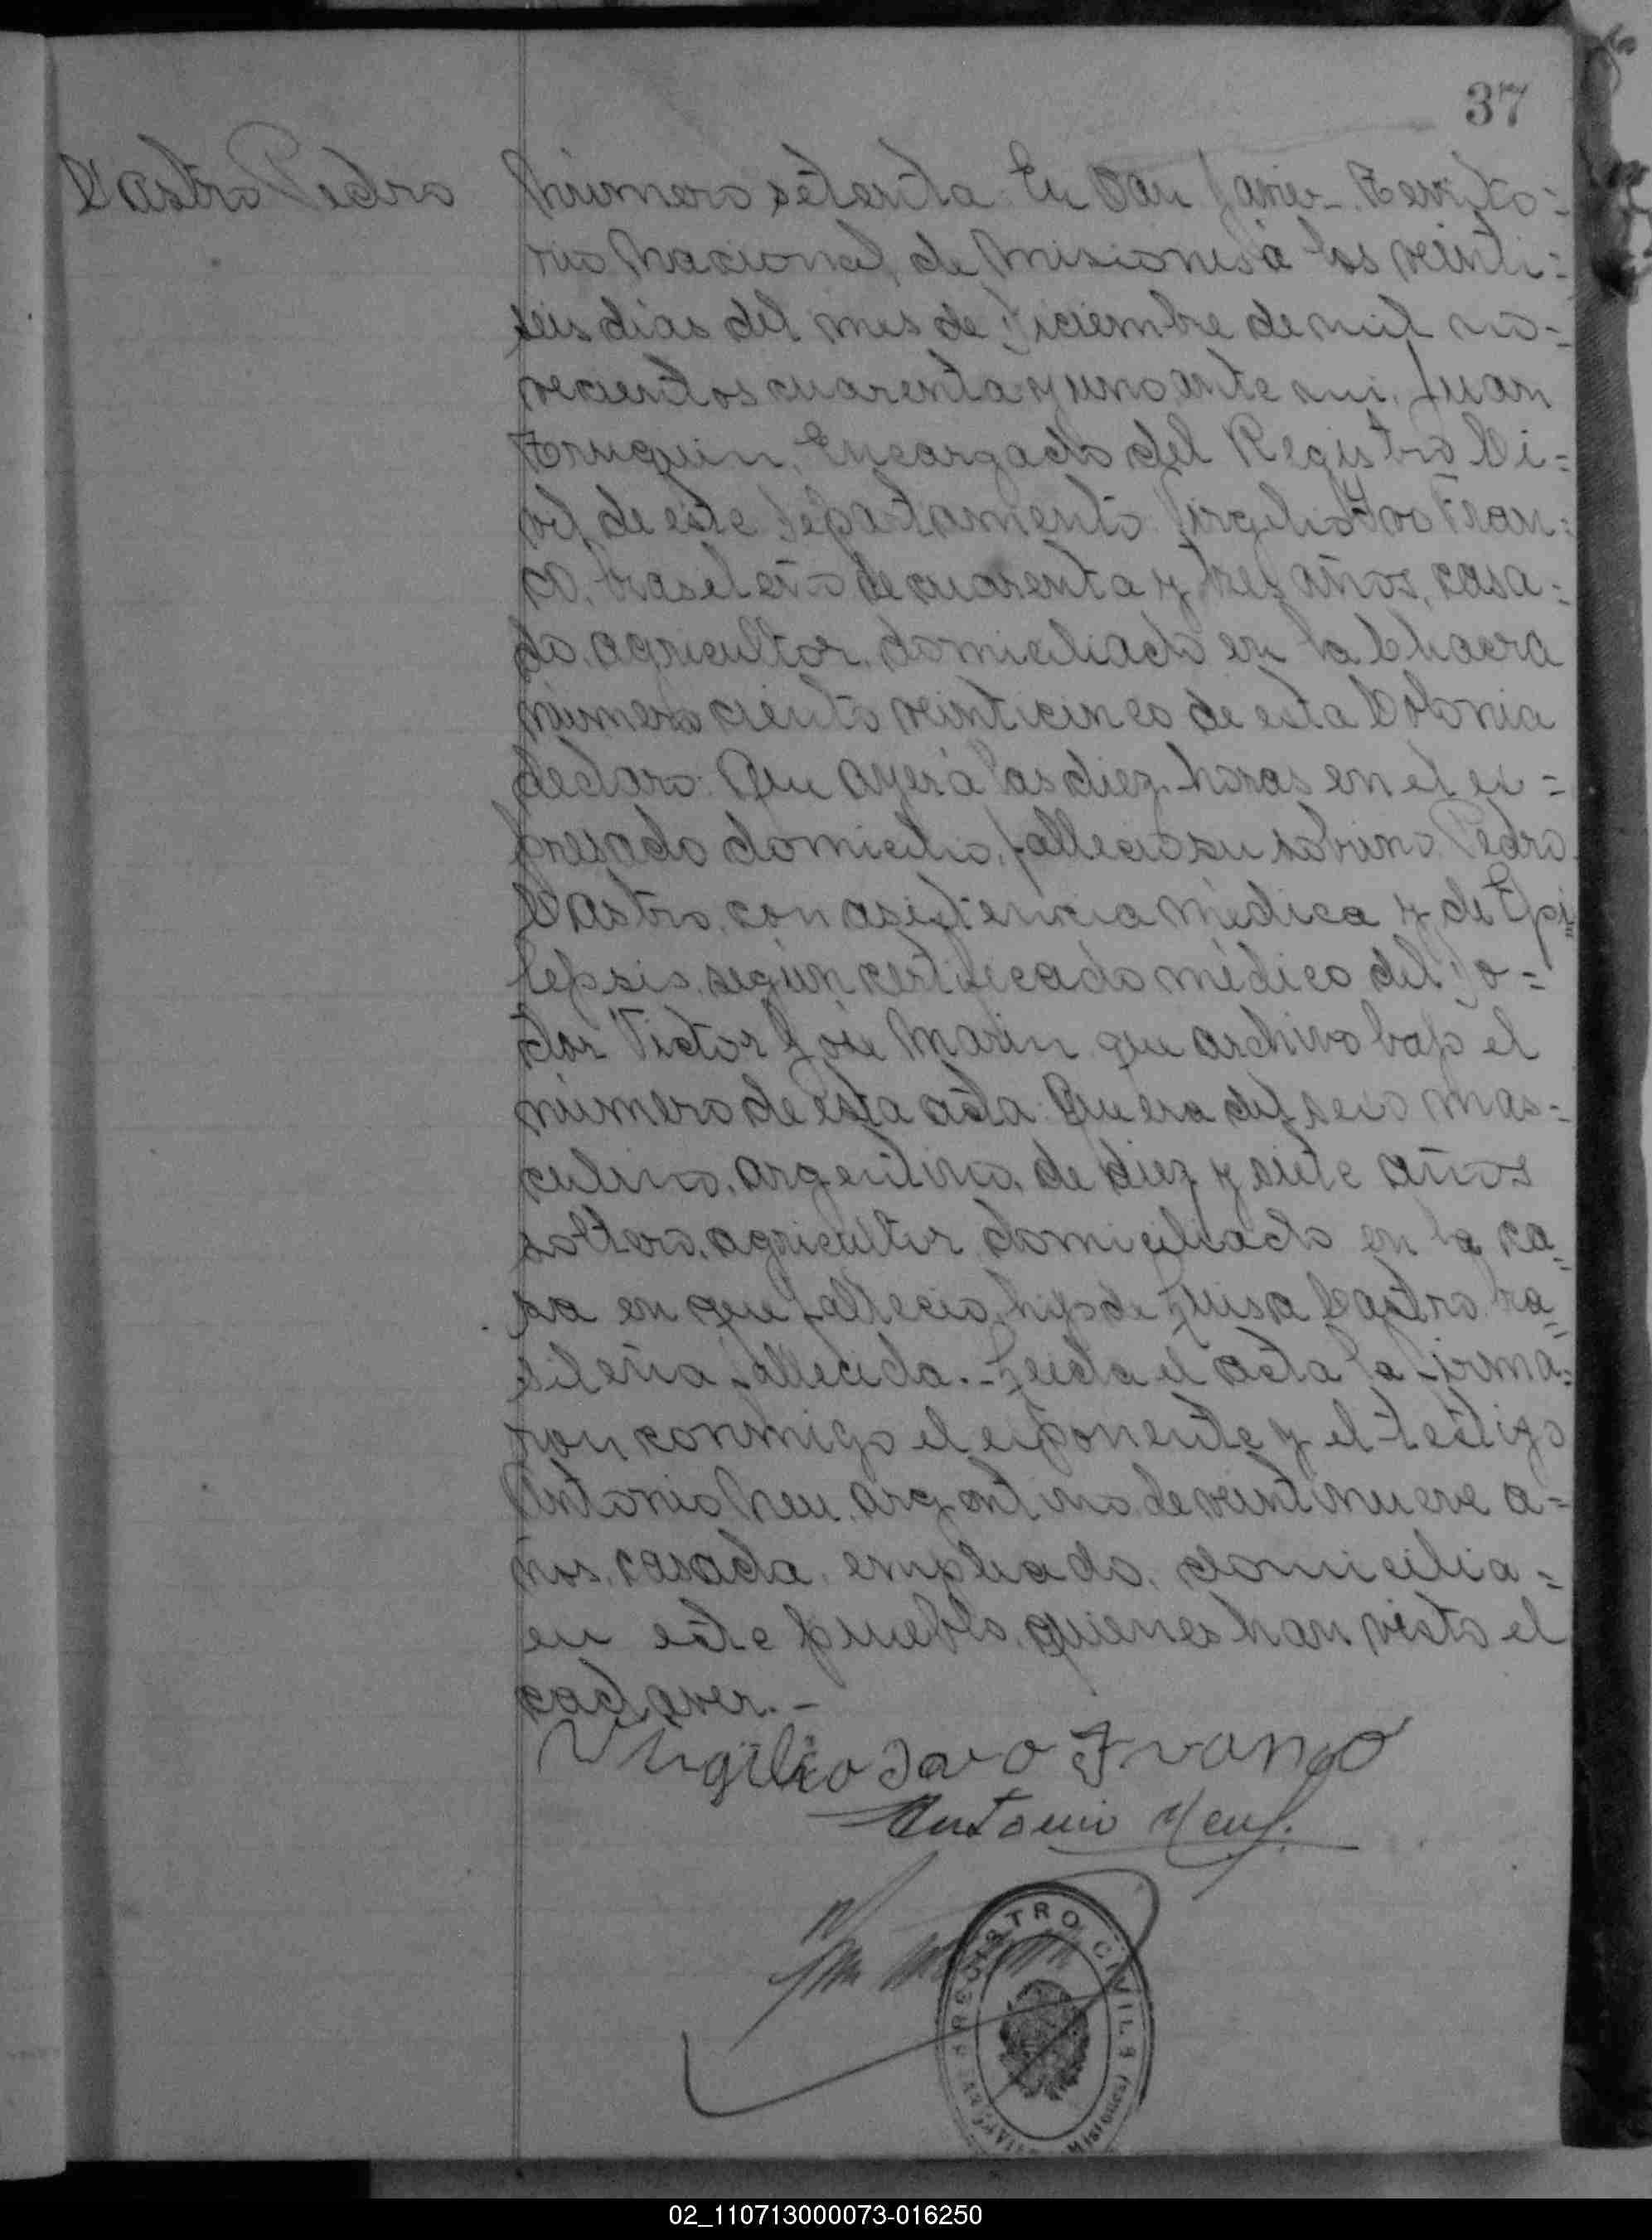 37
Castro Pedro
Número setenta. En San Javier. Territo=
rio Nacional, de Misiones á los veinti=
seis dias del mes de Diciembre de mil no=
vecientos cuarenta y uno, ante mi, Juan
Truquin, Encargado del Registro Ci=
vil de este Departamento: Virgilio Fran=
co, brasileño de cuarenta y tres años, casa=
do, agricultor, domiciliado en la Chacra
número ciento veinticinco de esta Colonia
declaró: Que ayer á las diez horas en el ex=
presado domicilio, falleció su sobrino Pedro
Castro, con asistencia médica y de Epi=
lepsis, segun certificado médico del Do=
ctor Victor José Marin que archivo bajo el
número de esta acta. Que era del sexo mas=
culino, argentino, de diez y siete años
soltero, agricultor domiciliado en la ca=
sa en que falleció, hijo de Luisa Castro, bra=
sileña fallecida.- Leida el acta la firma=
ron conmigo el exponente y el testigo
Antonio Neu, argentino de veintinueve a=
ños, casado, empleado, domicilia=
en este pueblo, quienes han visto el
cadaver.-
Virgilio Franco
Antonio Neu
REGISTRO CIVIL
(Misiones)
02_110713000073-016250